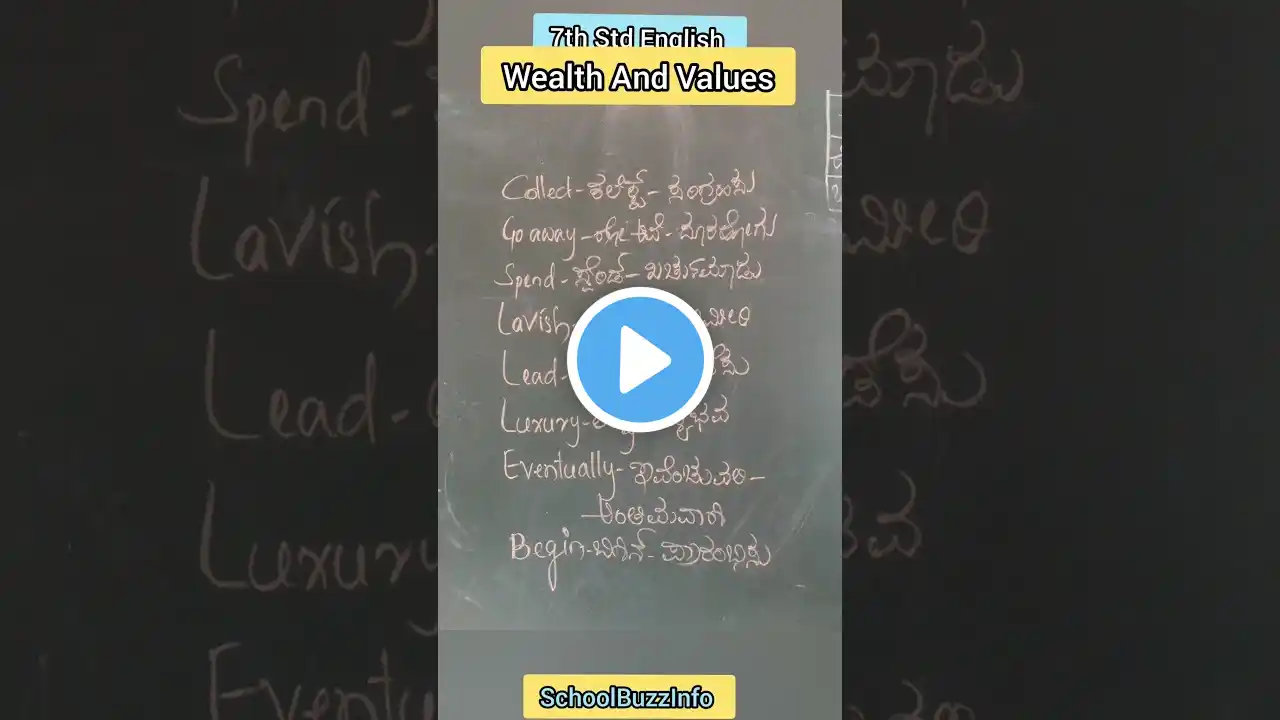 7th Std English
Wealth And Values
Collect - ಕಲೆಕ್ಟ್ - ಸಂಗ್ರಹಿಸು
Go away - ಗೋ ಅವೆ - ದೂರಹೋಗು
Spend - ಸ್ಪೆಂಡ್ - ಖರ್ಚುಮಾಡು
Lavish-
Lead-
Luxury-
Eventually- ಇವೆಂಚುವಲಿ -
- ಅಂತಿಮವಾಗಿ
Begin - ಬಿಗಿನ್ - ಪ್ರಾರಂಭಿಸು
SchoolBuzzInfo